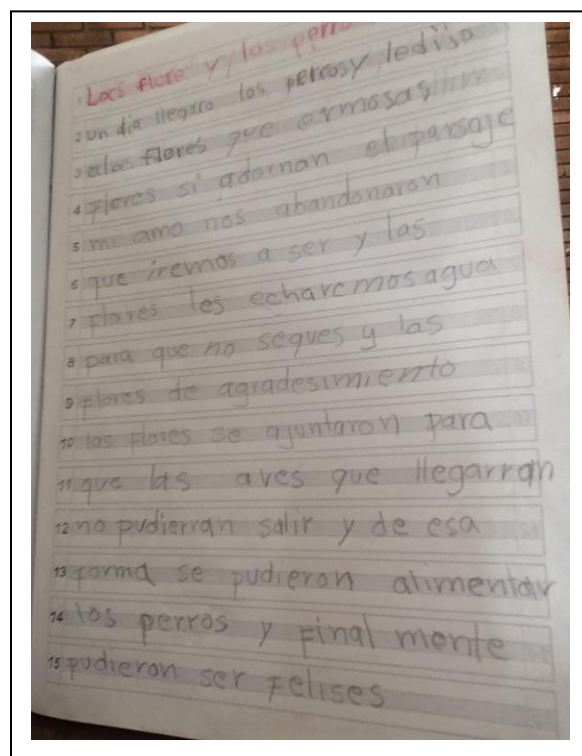 1 Lars flore y los perro
2 un dia llegaro los perrosy ledijo
3 alas flores que ermosas
4 flores si adornan el parsaje
5 mi amo nos abandonaron
6 que iremos a ser y las
7 flores les echaremos agua
8 para que no seques y las
9 flores de agradesimiento
10 las flores se ajuntaron para
11 que las aves que llegarran
12 no pudierran salir y de esa
13 forma se pudieron alimentar
14 los perros y final mente
15 pudieron ser felises